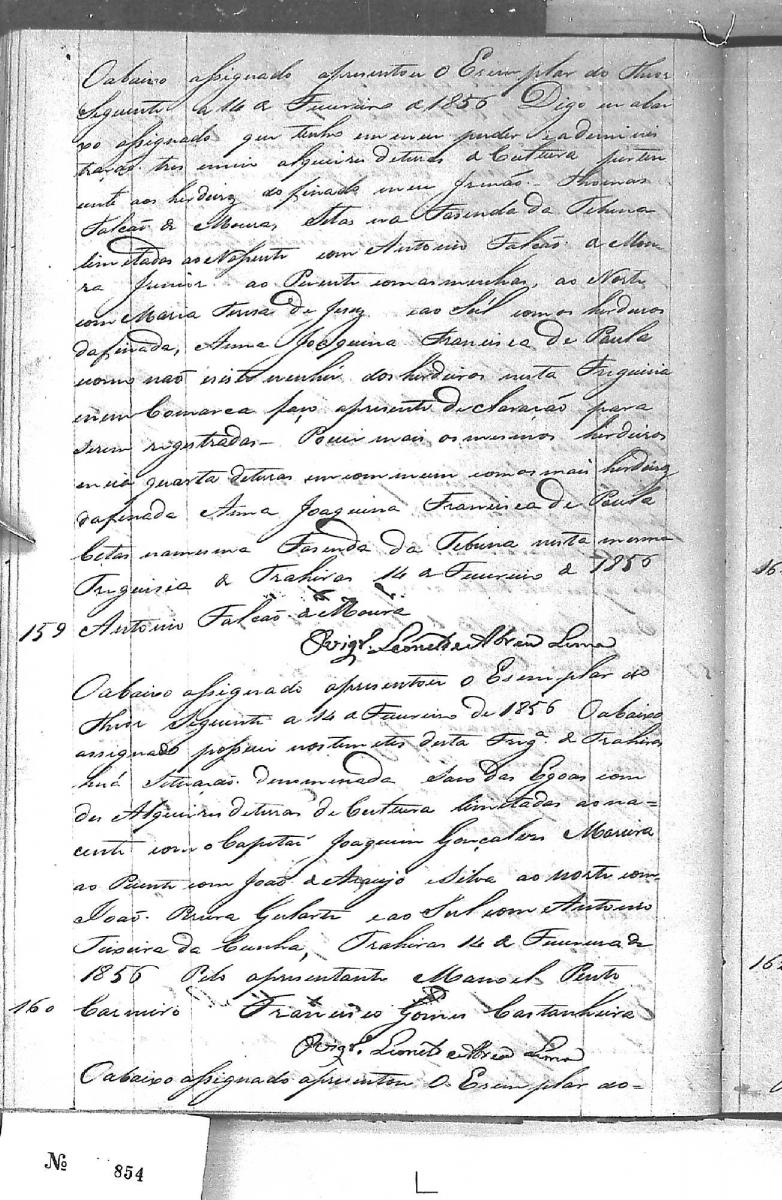 O abaixo assignado apresentou o Esemplar do theor
Seguinte a 14 de Fevereiro de 1856 Digo eu abai
xo assignado que tenho em meu puder eademinis
tração tres meir alqueires de terras de Cultura perten
cente aos herdeiros do finado meu Irmão Thomas
Falcão de Moura, Sitas na Fasenda da Tebuna
limitadas ao Nasente com Antonio Falcão de Mou
ra Junior ao Poente com as minhas, ao Norte
com Maria Teresa de Jesus e ao Sul com os herdeiros
da finada, Anna Joaquina Francisca de Paula
como não esiste nenhú dos herdeiros nesta Freguisia
e nem Comarca faço apresente declaração para
serem registradas Pocuem mais os mesmos herdeiros
meia quarta de terras em commum com os mais herdeiros
da finada Anna Joaquina Francisca de Paula
Cetas na mesma Fasenda da Tebuna nesta mesma
Freguisia de Trahiras 14 de Fevereiro de 1856
159 Antonio Falcão de Moura
O vigr. Leonel de Abreu Lima
O abaixo assignado apresentou o Esemplar do
theor Seguinte a 14 de Fevereiro de 1856 O abaixo
assignado possui nos lemites desta Frigª. de Trahiras
huá Setuacão denominada Saco das Egoas com
des Alqueires de terras de Cultura limitadas ao na-
cente com o Capitaí Joaquim Gonçalves Moreira
ao Puente com João de Araujo e Silva ao norte com
João Gularte e ao Sul com Antonio
Teixeira da Cunha, Trahiras 14 de Fevereiro de
1856 Pelo apresentante Manoel Pinto
160 Carneiro Francisco Gomes Castanheira
O vigr. Leonel de Abreu Lima
O abaixo assignado apresentou o Esemplar do-
16
162
Nº 854